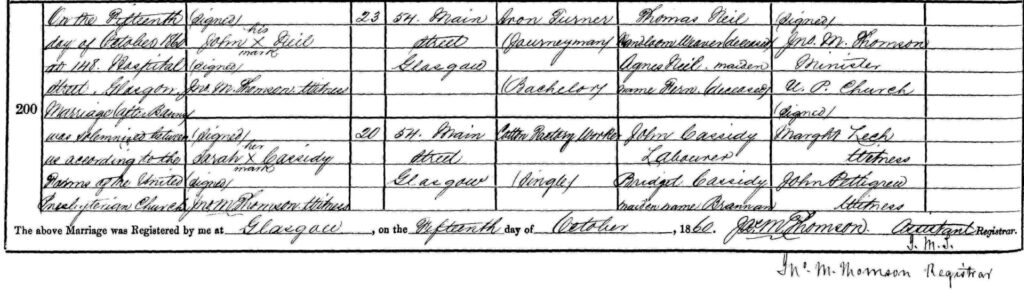 200
On the Fifteenth
day of October 1860
at 148. Hospital
street, Glasgow.
Marriage (after Banns)
was solemnized between
us according to the
Forms of the United
Presbyterian Church
(signed)
his
John x Neil
mark
(signed)
Jno. M. Thomson. Witness
(signed)
her
Sarah x Cassidy
mark
(signed)
Jno. M. Thomson. Witness
23
20
54. Main
street
Glasgow
54. Main
street
Glasgow
Iron Turner
(Journeyman)
(Bachelor)
Cotton Factory Worker
(Single)
Thomas Neil
Handloom Weaver (deceased)
Agnes Neil. maiden
name (deceased)
John Cassidy
Labourer
Bridget Cassidy
maiden name Brannan
(signed)
Jno. M. Thomson
Minister
U. P. Church
(signed)
Margt
Witness
John Pettigrew
Witness
The above Marriage was Registered by me at Glasgow, on the Fifteenth day of October, 1860. Jno. M. Thomson. Assistant Registrar.
J. M. T.
Jno. M. Thomson Registrar